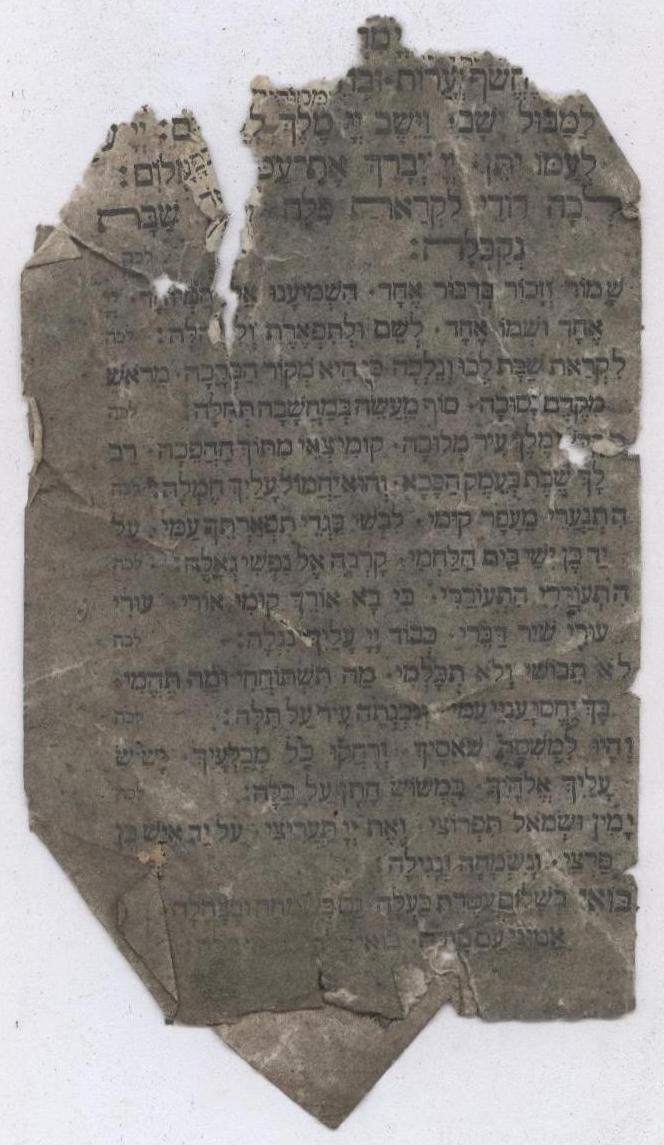 יְמוֹ
יֶחֱשֹׂף יְעָרוֹת וּבְ
לַמַּבּוּל יָשָׁב וַיֵּשֶׁב יְיָ מֶלֶךְ לְ ם: יְיָ ע
לְעַמּוֹ יִתֵּן יְיָ יְבָרֵךְ אֶת עַמּ לוֹם:
לְכָה דוֹדִי לִקְרַאת כַּלָּה שַׁבָּת
נְקַבְּלָה: לכה
שָׁמוֹר וְזָכוֹר בְּדִבּוּר אֶחָד· הִשְׁמִיעָנוּ אֵל הַמְיֻחָד· יְיָ
אֶחָד וּשְׁמוֹ אֶחָד· לְשֵׁם וּלְתִפְאֶרֶת וְלִ הִלָּה: לכה
לִקְרַאת שַׁבָּת לְכוּ וְנֵלְכָה כִּי הִיא מְקוֹר הַבְּרָכָה· מֵרֹאשׁ
מִקֶּדֶם נְסוּכָה· סוֹף מַעֲשֶׂה בְּמַחֲשָׁבָה תְּחִלָּה: לכה
מִקְדַּשׁ מֶלֶךְ עִיר מְלוּכָה· קוּמִי צְאִי מִתּוֹךְ הַהֲפֵכָה· רַב
לָךְ שֶׁבֶת בְּעֵמֶק הַבָּכָא· וְהוּא יַחֲמוֹל עָלַיִךְ חֶמְלָה: לכה
הִתְנַעֲרִי מֵעָפָר קוּמִי· לִבְשִׁי בִּגְדֵי תִפְאַרְתֵּךְ עַמִּי· עַל
יַד בֶּן יִשַׁי בֵּית הַלַּחְמִי· קָרְבָה אֶל נַפְשִׁי גְאָלָהּ: לכה
הִתְעוֹרְרִי הִתְעוֹרְרִי· כִּי בָא אוֹרֵךְ קוּמִי אוֹרִי· עוּרִי
עוּרִי שִׁיר דַּבֵּרִי· כְּבוֹד יְיָ עָלַיִךְ נִגְלָה: לכה
לֹא תֵבוֹשִׁי וְלֹא תִכָּלְמִי· מַה תִּשְׁתּוֹחֲחִי וּמַה תֶּהֱמִי·
בָּךְ יֶחֱסוּ עֲנִיֵּי עַמִּי· וְנִבְנְתָה עִיר עַל תִּלָּהּ: לכה
וְהָיוּ לִמְשִׁסָּה שֹׁאסָיִךְ· וְרָחֲקוּ כָּל מְבַלְּעָיִךְ· יָשִׂישׂ
עָלַיִךְ אֱלֹהָיִךְ· כִּמְשׂוֹשׂ חָתָן עַל כַּלָּה: לכה
יָמִין וּשְׂמֹאל תִּפְרוֹצִי· וְאֶת יְיָ תַּעֲרִיצִי· עַל יַד אִישׁ בֶּן
פַּרְצִי· וְנִשְׂמְחָה וְנָגִילָה:
בּוֹאִי בְשָׁלוֹם עֲטֶרֶת בַּעְלָהּ· גַּם בְּשִׂמְחָה וּבְצָהֳלָה·
אֱמוּנֵי עַם סְגֻלָּה· בּוֹאִי